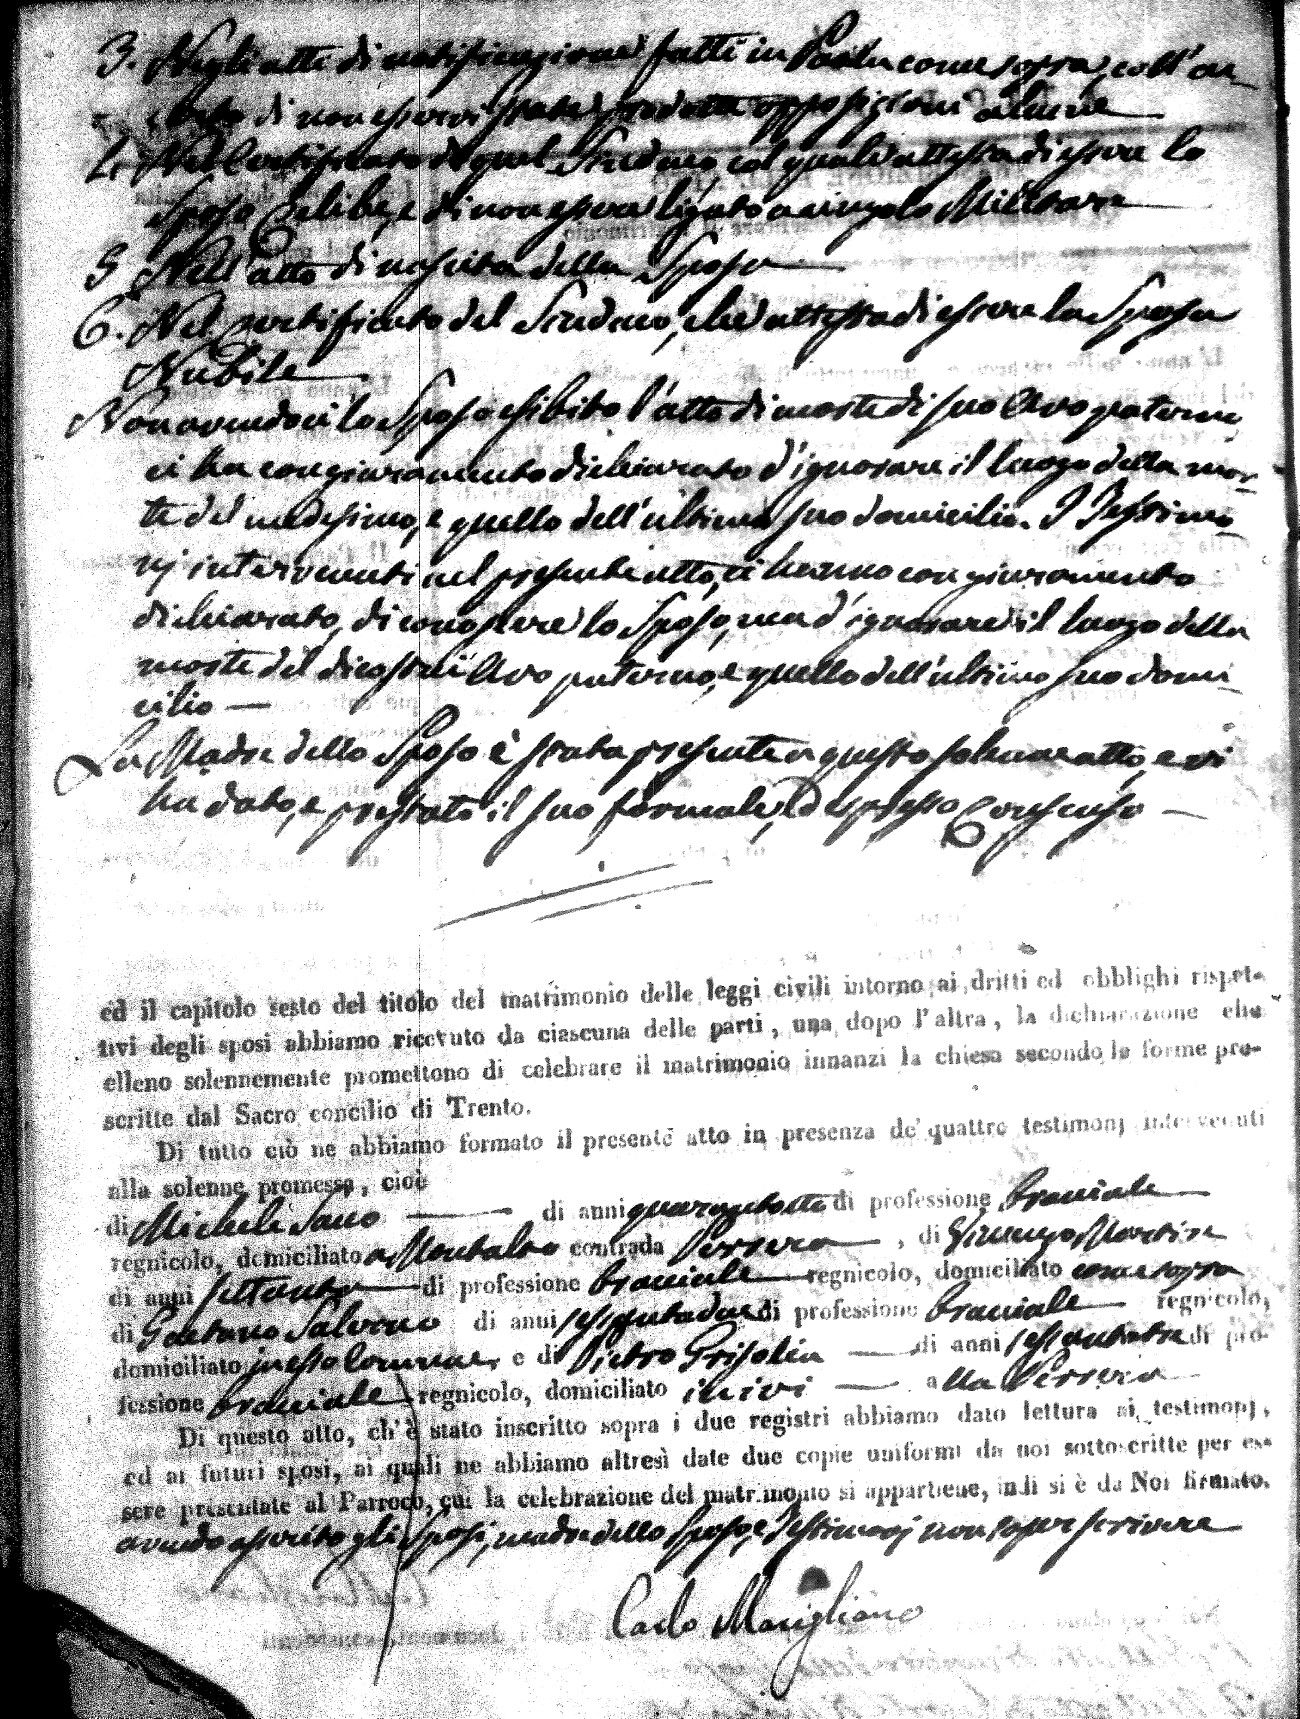 3. Negli atti di notificazione fatti in Paola come sopra, coll'at-
di non esservi stata prodotta opposizione alcuna
4. Nel Certificato di quel Sindaco, col quale attessa di essere lo
Sposo Celibe, e di non essere ligato a vincolo Militare
5 Nell'atto di nascita della Sposa
6. Nel certificato del Sindaco, che attessa di essere la Sposa
Nubile
Non avendoci lo Sposo esibito l'atto di morte di suo Avo paterno,
ci ha con giuramento dichiarato d'ignorare il luogo della mor-
te del medesimo, e quello dell'ultimo suo domicilio. I Testimo-
nj intervenuti nel presente atto, ci hanno con giuramento
dichiarato, di conoscere lo Sposo, ma d'ignorare il luogo della
morte del dicostui Avo paterno, e quello dell'ultimo suo domi-
cilio —
La Madre dello Sposo è stata presente a questo solenne atto, e vi
ha dato, e prestato il suo formale, ed espresso Consenso —
ed il capitolo sesto del titolo del matrimonio delle leggi civili intorno ai dritti ed obblighi rispet-
tivi degli sposi abbiamo ricevuto da ciascuna delle parti, una dopo l'altra, la dichiarazione che
elleno solennemente promettono di celebrare il matrimonio innanzi la chiesa secondo le forme pre-
scritte dal Sacro concilio di Trento.
Di tutto ciò ne abbiamo formato il presente atto in presenza de' quattro testimonj intervenuti
alla solenne promessa, cioè
di Micheli Sano — di anni quarantotto di professione bracciale
regnicolo, domiciliato a Montalto contrada Verrera —, di Vincenzo Martire
di anni settanta — di professione bracciale — regnicolo, domiciliato come sopra
di Gaetano Salerno di anni sessantadue di professione bracciale — regnicolo,
domiciliato in esso Comune, e di Pietro Grisolia — di anni sessantatre di pro-
fessione bracciale regnicolo, domiciliato in ivi — alla Verrera
Di questo atto, ch'è stato inscritto sopra i due registri abbiamo dato lettura ai testimonj,
ed ai futuri sposi, ai quali ne abbiamo altresì date due copie uniformi da noi sottoscritte per es-
sere presentate al Parroco, cui la celebrazione del matrimonio si appartiene, indi si è da Noi firmato.
avendo asserito gli Sposi, madre dello Sposo, e Testimonj non saper scrivere
Carlo Marigliano